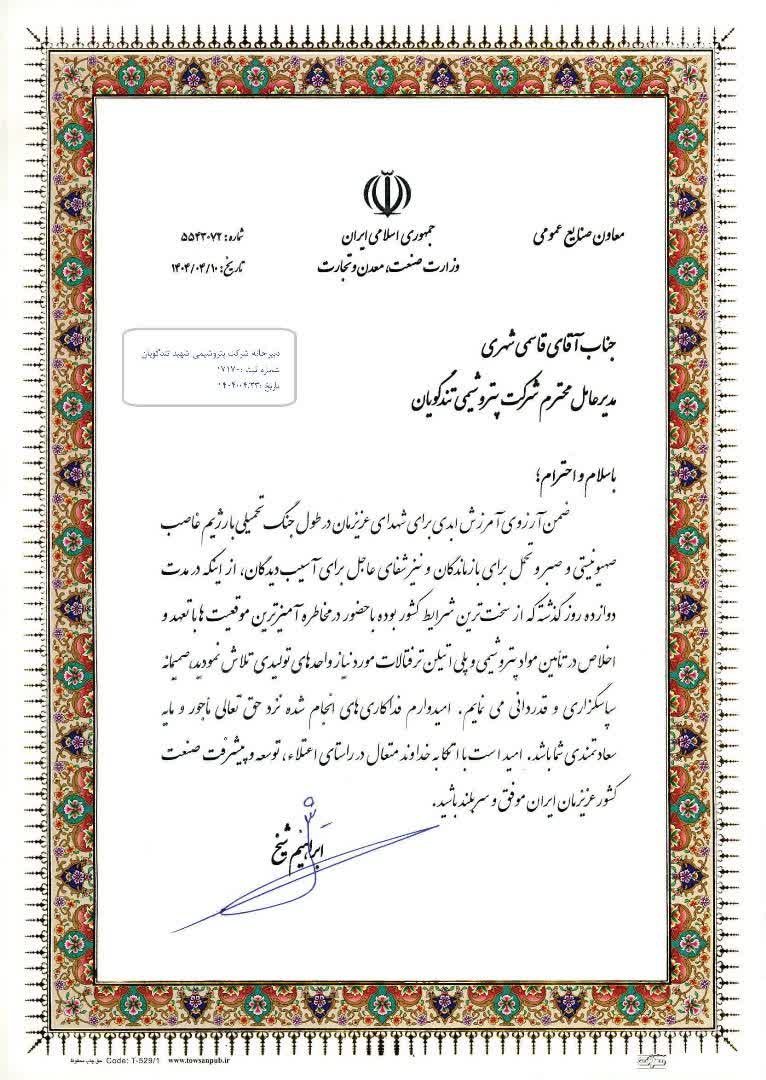 جمهوری اسلامی ایران
وزارت صنعت، معدن و تجارت
معاون صنایع عمومی
شماره: ۵۵۴۳۰۷۲
تاریخ: ۱۴۰۴/۰۴/۱۰
دبیرخانه شرکت پتروشیمی شهید تندگویان
شماره ثبت: ۷۱۷۰
تاریخ: ۱۴۰۴.۰۴.۲۳
جناب آقای قاسمی شهری
مدیرعامل محترم شرکت پتروشیمی تندگویان
با سلام و احترام؛
ضمن آرزوی آمرزش ابدی برای شهدای عزیزمان در طول جنگ تحمیلی با رژیم غاصب
صهیونیتی و صبر و تحمل برای بازماندگان و نیز شفای عاجل برای آسیب‌دیدگان، از اینکه در مدت
دوازده روز گذشته که از سخت‌ترین شرایط کشور بوده با حضور در مخاطره آمیزترین موقعیت ها با تعهد و
اخلاص در تأمین مواد پتروشیمی و پلی اتیلن ترفتالات مورد نیاز واحدهای تولیدی تلاش نمودید، صمیمانه
سپاسگزاری و قدردانی می نمایم. امیدوارم فداکاری های انجام شده نزد حق تعالی مأجور و مایه
سعادتمندی شما باشد. امید است با اتکا به خداوند متعال در راستای اعتلاء، توسعه و پیشرفت صنعت
کشور عزیزمان ایران موفق و سربلند باشید.
ابراهیم شیخ
حق چاپ محفوظ Code: T-529/1 www.towsanpub.ir